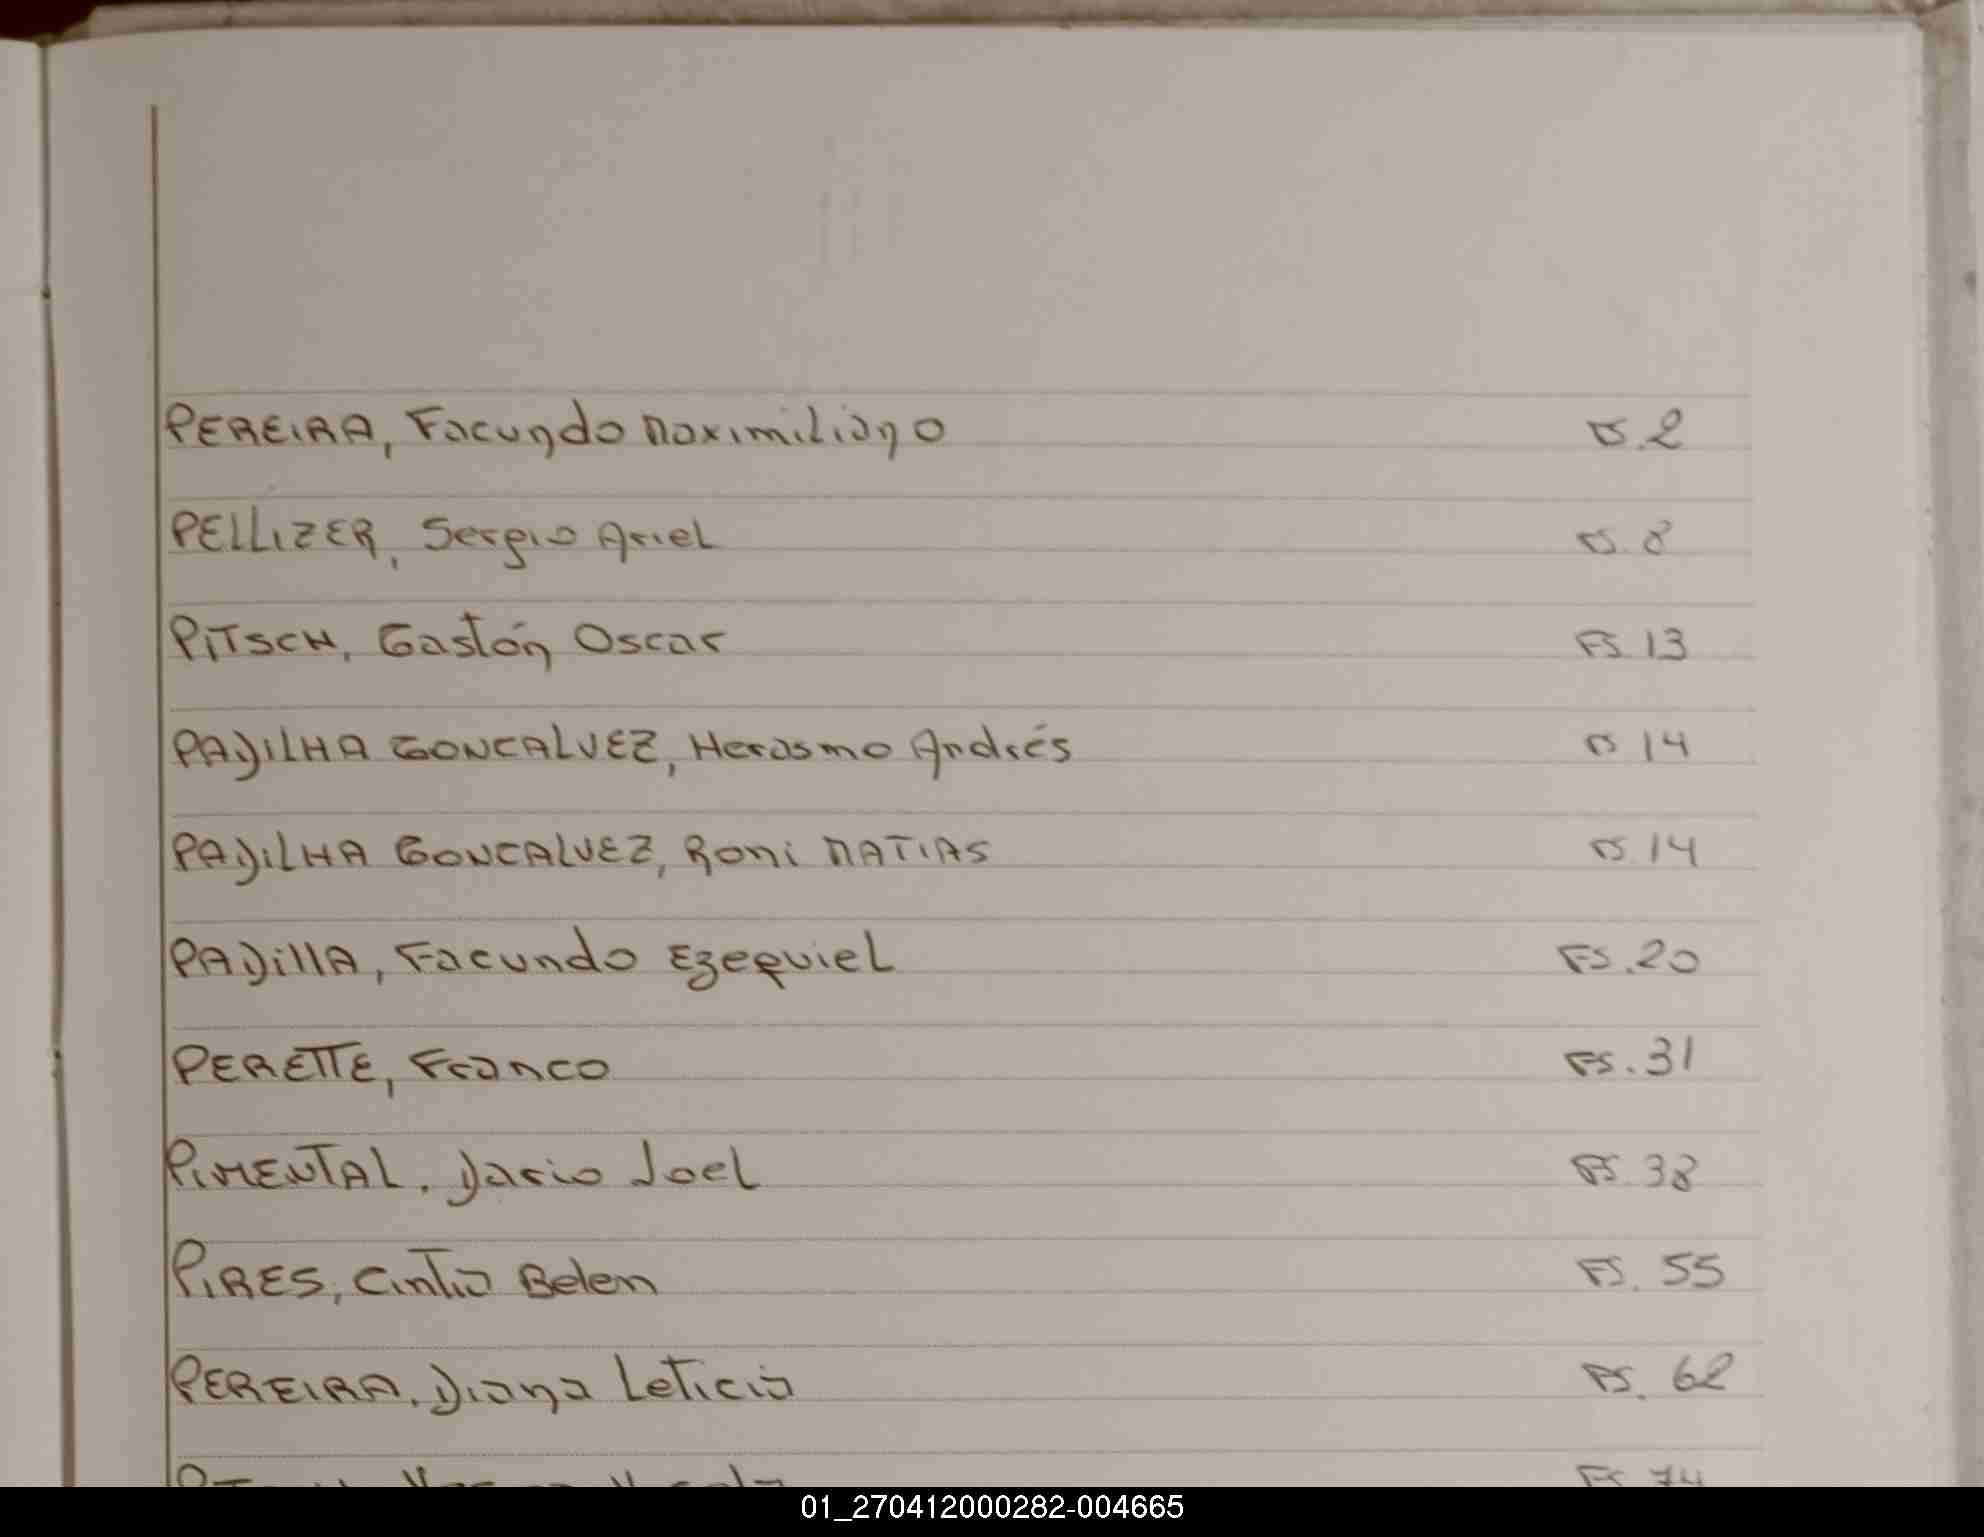 PEREIRA, Facundo Maximiliano FS. 2
PELLIZER, Sergio Ariel FS. 8
PITSCH, Gastón Oscar FS. 13
PADILHA GONCALVEZ, Herasmo Andrés FS 14
PADILHA GONCALVEZ, Roni MATIAS FS. 14
PADILLA, Facundo Ezequiel FS. 20
PERETTE, Franco FS. 31
PIMENTAL, Dario Joel FS. 38
PIRES, Cintia Belen FS. 55
PEREIRA, Diana Leticia FS. 62
FS 74
01_270412000282-004665